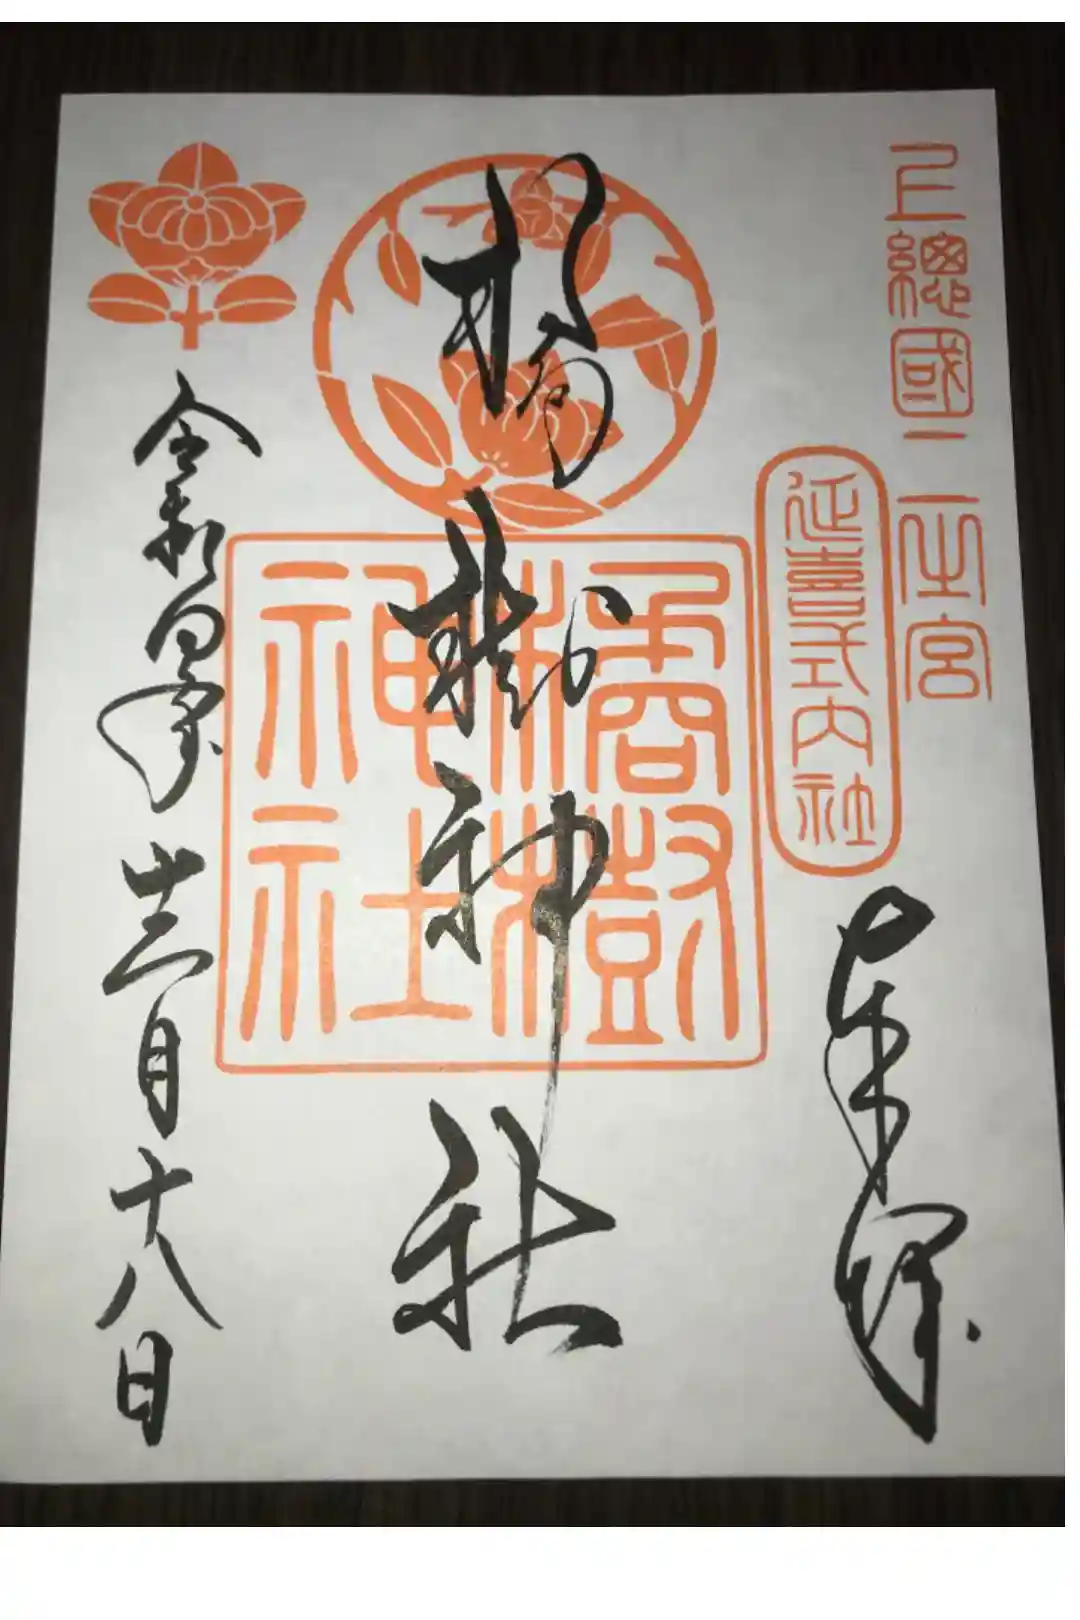 上總國二之宮
延喜式內社
奉拝
橘樹神社
橘樹神社
令和四年
十二月十八日